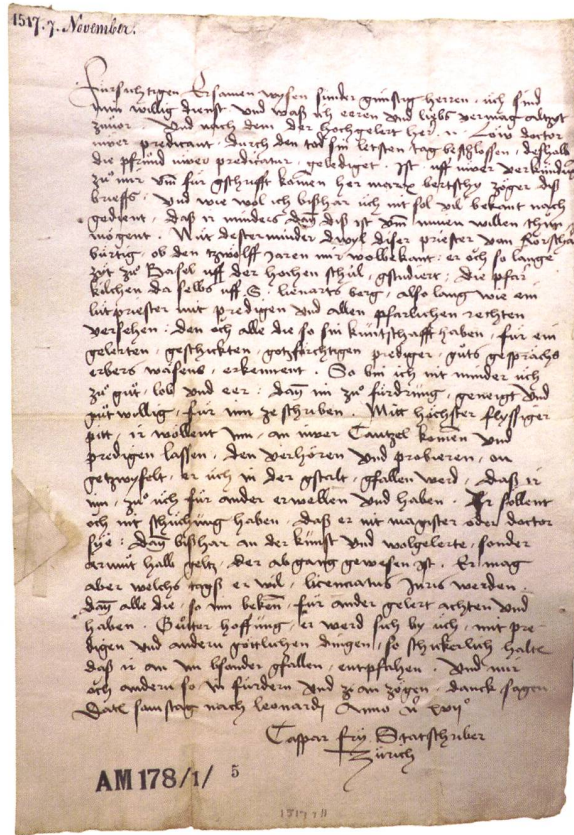 1517. 7. November.
Fürsichtigen Ersamen wysen sunder günstig herren. üch sind
min willig dienst und waß ich eeren und liebs vermag altzyt
zuvor. Und nach dem der hochgelert her n. Löw doctor
üwer predicant, durch den tod sin letsten tag beschlossen, deßhalb
die pfrund üwer predicatur, gelediget. Ist uff üwer verkünden
zu mir umb für gschrifft komen her marx bertschy zöger diß
brieffs. Und wie wol ich bißhar üch nit sol vil bekant noch
gedient, daß ir minders dann diß ist umb minen willen thun
mögent. Mitt destermynder dwyl diser priester von Rorschach
bürtig, ob den tzwölff jaren mir wolbekant: er och so lange
zyt zu Basel uff der hochen schul, gstudiert: die pfar
kilchen da selbs uff S. lienarts berg, also lang wie ein
lütpriester mit predigen und allen pfarlichen rechten
versehen: den och alle die so sin kuntschafft haben, für ein
gelerten, geschickten, gotzfürchtigen prediger, guts gesprächs
erbers wäsens, erkennent. So bin ich nit minder üch
zu gut, lob und eer: dann im zu fürdrung, geneigt und
gutwillig, für inn ze schriben. Mitt höchster flyssiger
pitt, ir wöllent inn, an üwer Cantzel komen und
predigen lassen, den verhören und probieren, on
getzwyfelt, er üch in der gstalt, gfallen werd, daß ir
inn, zu üch für ander erwellen und haben. Ir sollent
och nit schüchung haben, daß er nit magister oder doctor
sye: dann bißhar an der kunst und wolgelerte, sonder
armut halb geltz, der abgang gewesen ist. Er mag
aber welchs tags er wil, licenciatus Juris werden.
dann alle die, so inn beken, für ander gelert achten und
haben. Gutter hoffnung, er werd sich by üch, mit pre-
digen und andern göttlichen dingen, so schickerlich halte
daß ir an im bsonder gfallen, entpfahen. Und mir
och andern so in fürdern und zu an zögen, danck sagen
Datum samstag nach leonardi Anno xvijº
Caspar fry Statschriber
Zürich
AM 178/1/ 5